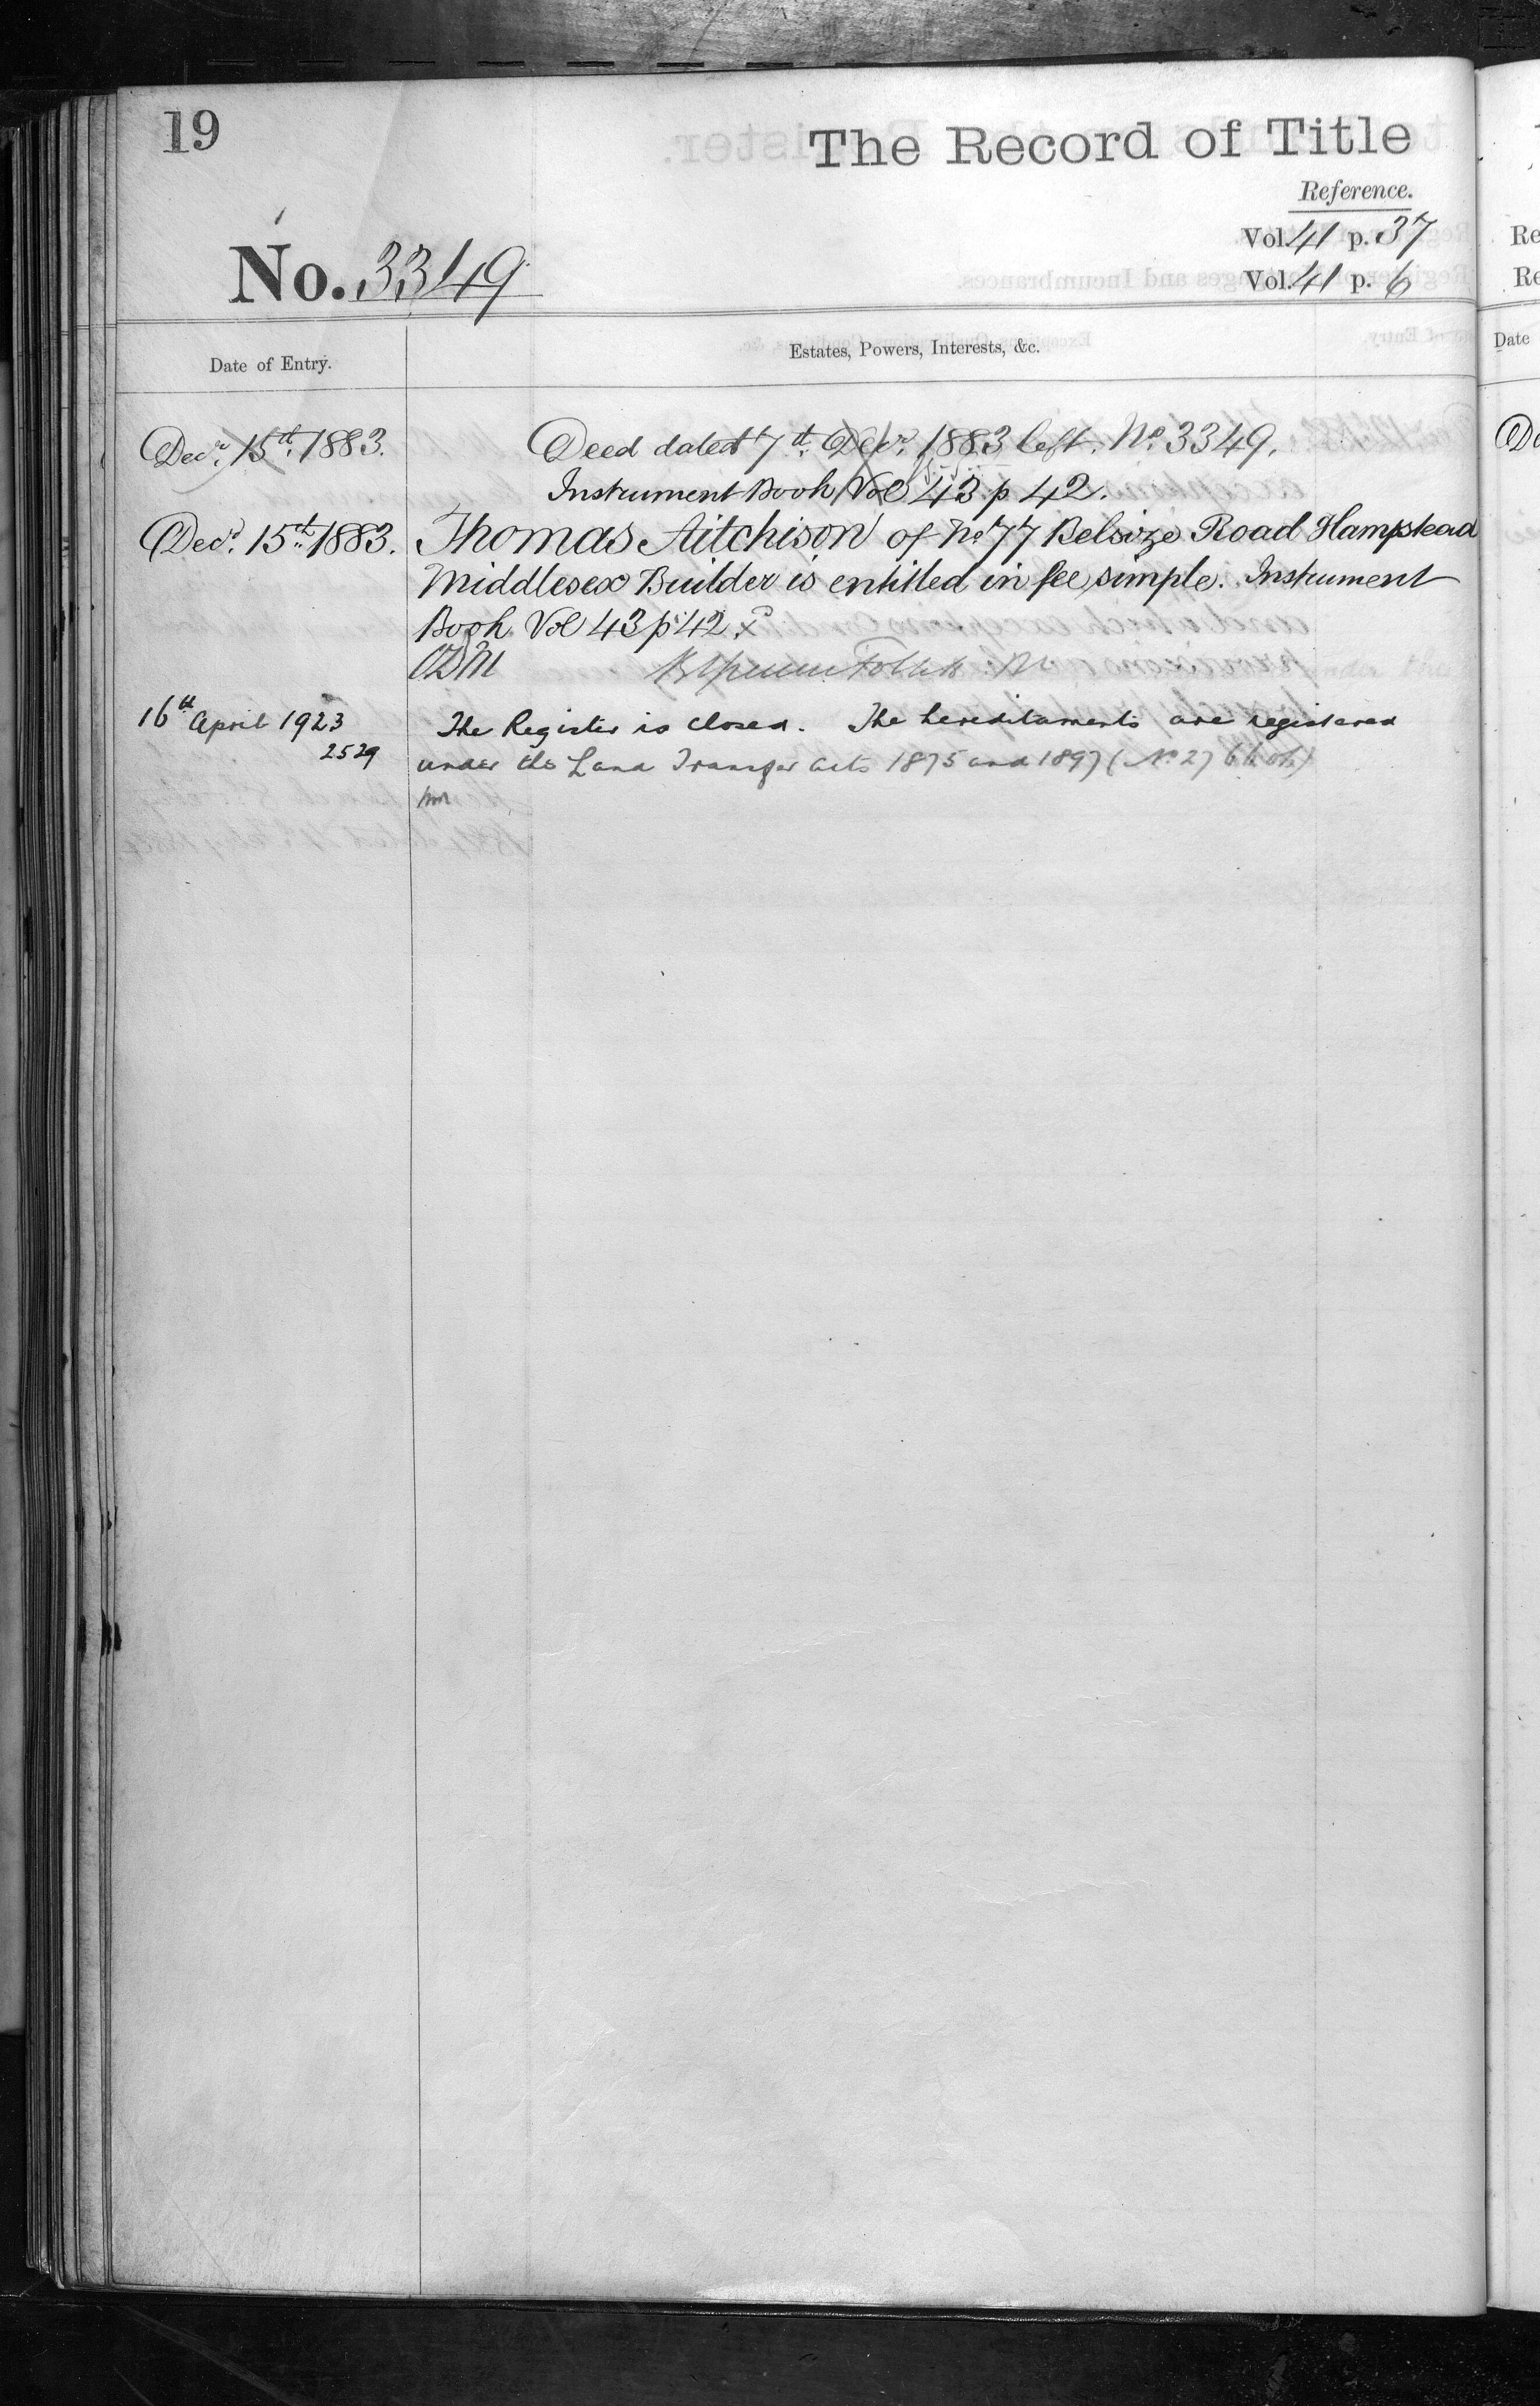 19
The Record of Title
Reference.
Vol. 41 p. 37
No. 3349
Vol. 41 p. 6
Date of Entry.
Estates, Powers, Interests, &c.
Decr. 15th. 1883.
Deed dated 7th. Decr. 1883 left. No. 3349.
Instrument Book Vol 43 p 42.
Decr. 15th. 1883.
Thomas Aitchison of No 77 Belsize Road Hampstead
Middlesex Builder is entitled in fee simple. Instrument
Book Vol 43 p 42
16th April 1923
2529
The Register is closed. The hereditaments are registered
under the Land Transfer Acts 1875 and 1897 (No. 27
Re
Re
Date